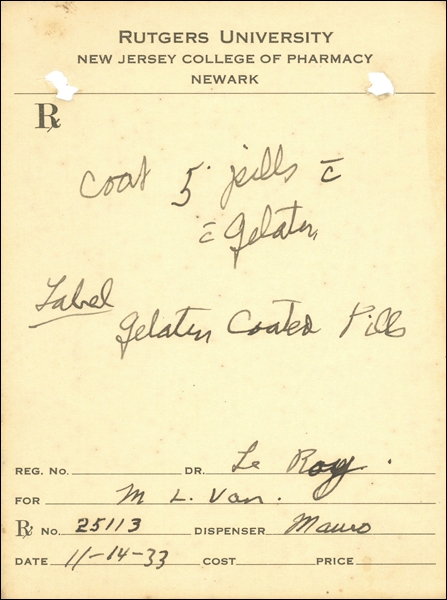 RUTGERS UNIVERSITY
NEW JERSEY COLLEGE OF PHARMACY
NEWARK
℞
Coat 5 pills c̄
c̄ Gelatin
Label
Gelatin Coated Pills
REG. No. DR. Le Roy.
FOR M L. Van.
℞ No. 25113 DISPENSER Mauro
DATE 11-14-33 COST PRICE